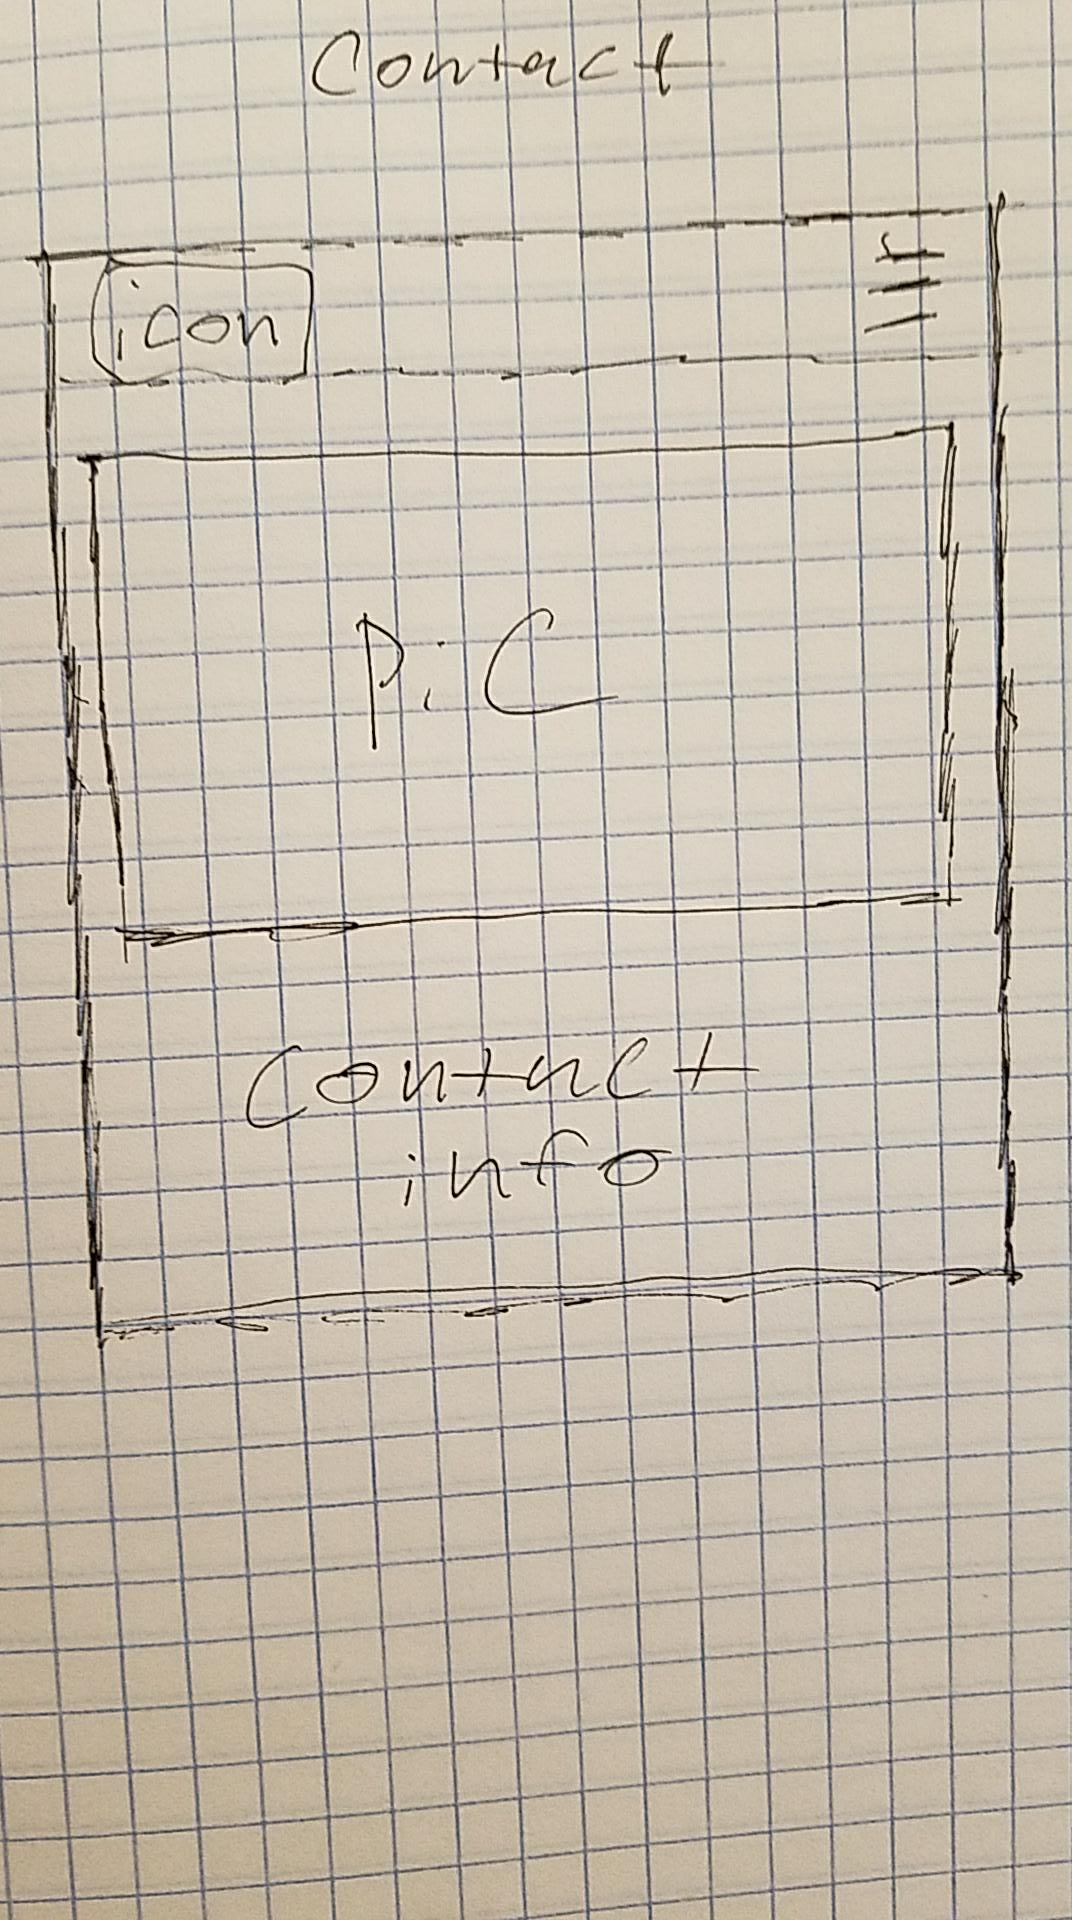 Contact
icon
Pic
Contact
info